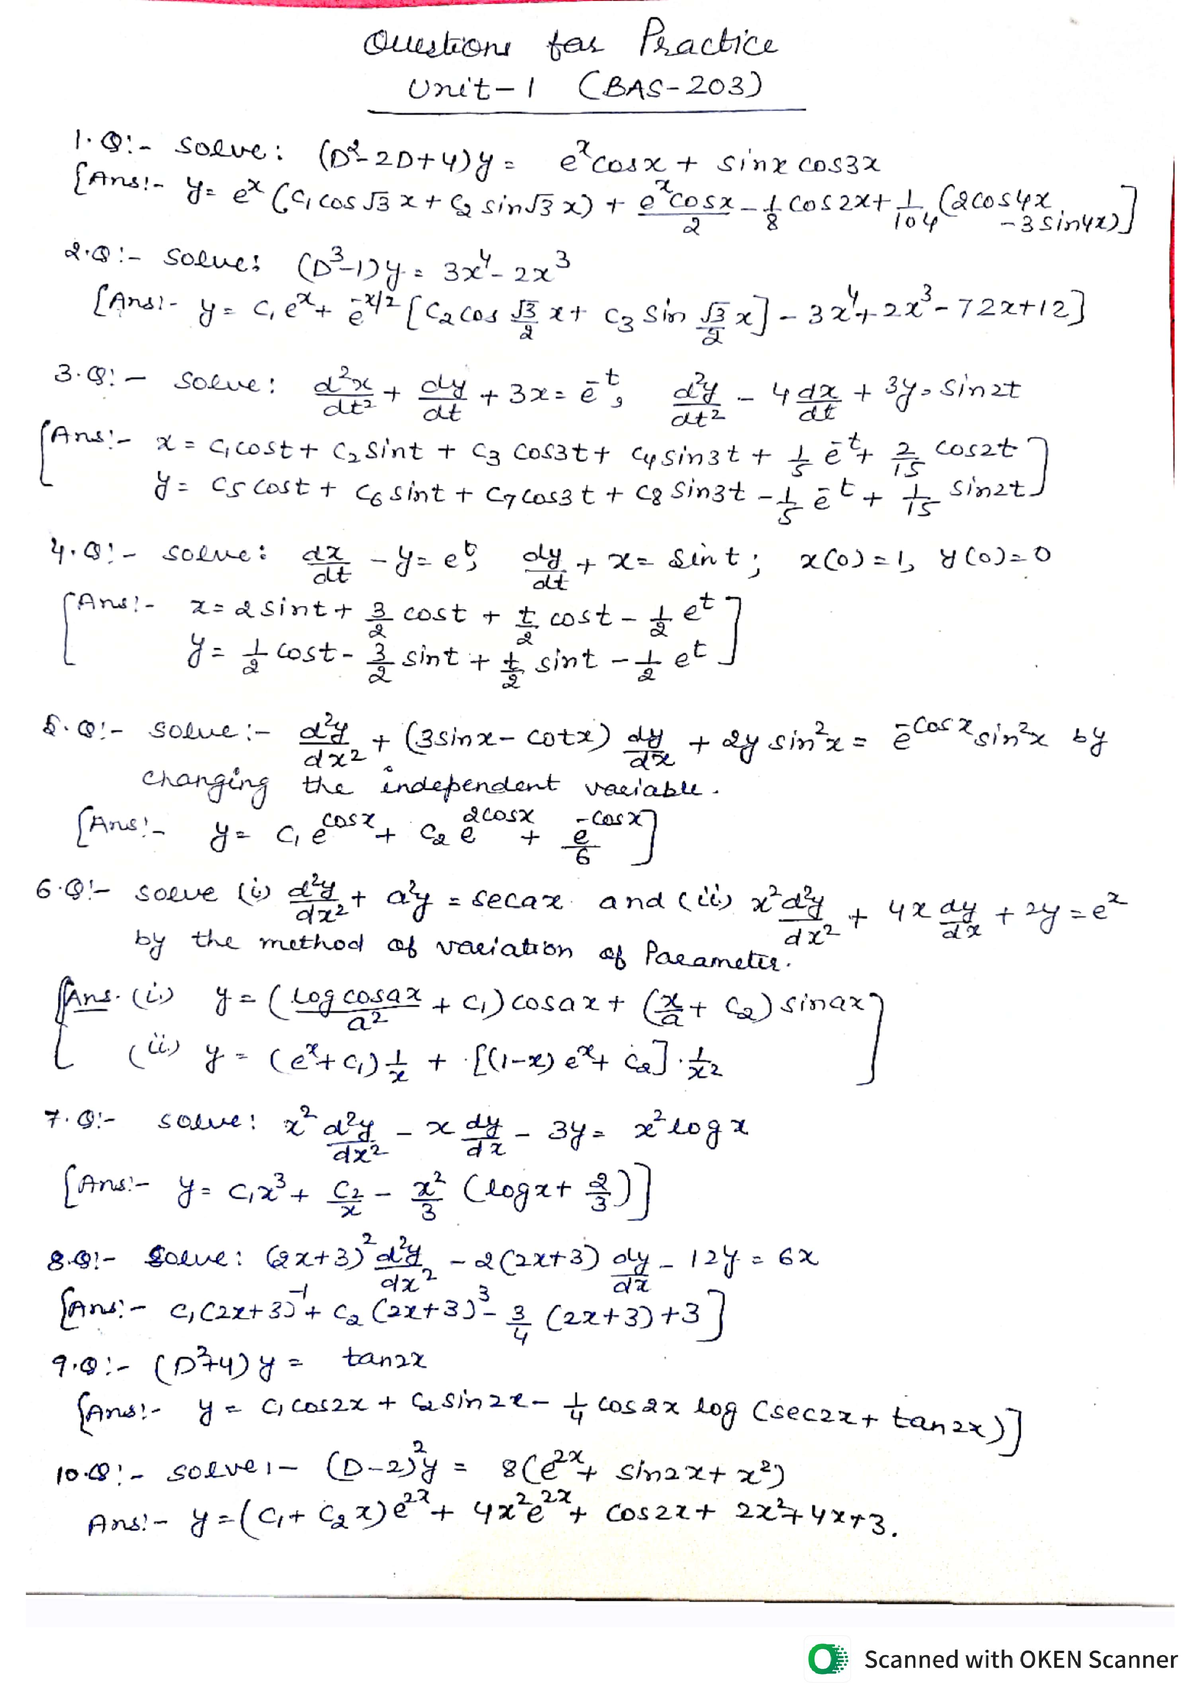 Questions for Practice
Unit-1 (BAS-203)
1.Q:- Solve: (D²-2D+4)y = eˣcosx + sinx cos3x
[Ans:- y= eˣ (c₁ cos√3 x + c₂ sin√3 x) + eˣcosx/2 - 1/8 cos2x + 1/104 (2cos4x - 3sin4x)]
2.Q:- Solve: (D³-1)y = 3x⁴- 2x³
[Ans:- y = c₁eˣ + e^(-x/2) [c₂ cos √3/2 x + c₃ sin √3/2 x] - 3x⁴+2x³-72x+12]
3.Q:- Solve: d²x/dt² + dy/dt + 3x = e^-t, d²y/dt² - 4dx/dt + 3y = sin2t
[Ans:- x = c₁cost + c₂sint + c₃ cos3t + c₄sin3t + 1/5 e^-t + 2/15 cos2t
y = c₅cost + c₆sint + c₇cos3t + c₈ sin3t - 1/5 e^-t + 1/15 sin2t]
4.Q:- Solve: dx/dt - y = e^t, dy/dt + x = sint; x(0)=1, y(0)=0
[Ans:- x= 2sint + 3/2 cost + t/2 cost - 1/2 e^t
y = 1/2 cost - 3/2 sint + t/2 sint - 1/2 e^t]
5.Q:- Solve:- d²y/dx² + (3sinx - cotx) dy/dx + 2y sin²x = e^-cosx sin²x by
changing the independent variable.
[Ans:- y = c₁ e^cosx + c₂ e^2cosx + e^-cosx/6]
6.Q:- Solve (i) d²y/dx² + a²y = secax and (ii) x²d²y/dx² + 4x dy/dx + 2y = eˣ
by the method of variation of Parameter.
[Ans. (i) y = (log cosax/a² + c₁) cosax + (x/a + c₂) sinax
(ii) y = (eˣ+c₁) 1/x + [(1-x)eˣ+ c₂] . 1/x²]
7.Q:- Solve: x² d²y/dx² - x dy/dx - 3y = x²logx
[Ans:- y = c₁x³ + c₂/x - x²/3 (logx + 2/3)]
8.Q:- Solve: (2x+3)² d²y/dx² - 2(2x+3) dy/dx - 12y = 6x
[Ans:- c₁(2x+3)⁻¹ + c₂ (2x+3)³ - 3/4 (2x+3) + 3]
9.Q:- (D²+4)y = tan2x
[Ans:- y = c₁cos2x + c₂sin2x - 1/4 cos2x log (sec2x + tan2x)]
10.Q:- Solve:- (D-2)²y = 8(e^2x + sin2x + x²)
Ans:- y = (c₁+ c₂x)e^2x + 4x²e^2x + cos2x + 2x²+4x+3.
Scanned with OKEN Scanner